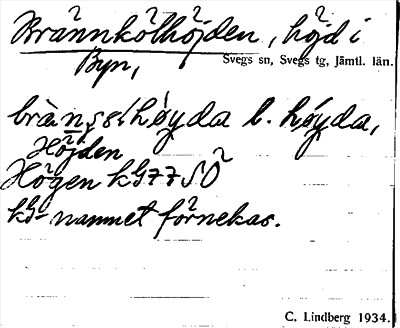 Brännkölhöjden, höjd i
Byn,
Svegs sn, Svegs tg, Jämtl. län.
höyda b. höyda,
Höjden
Högen kG77SÖ
kG-namnet förnekas.
C. Lindberg 1934.